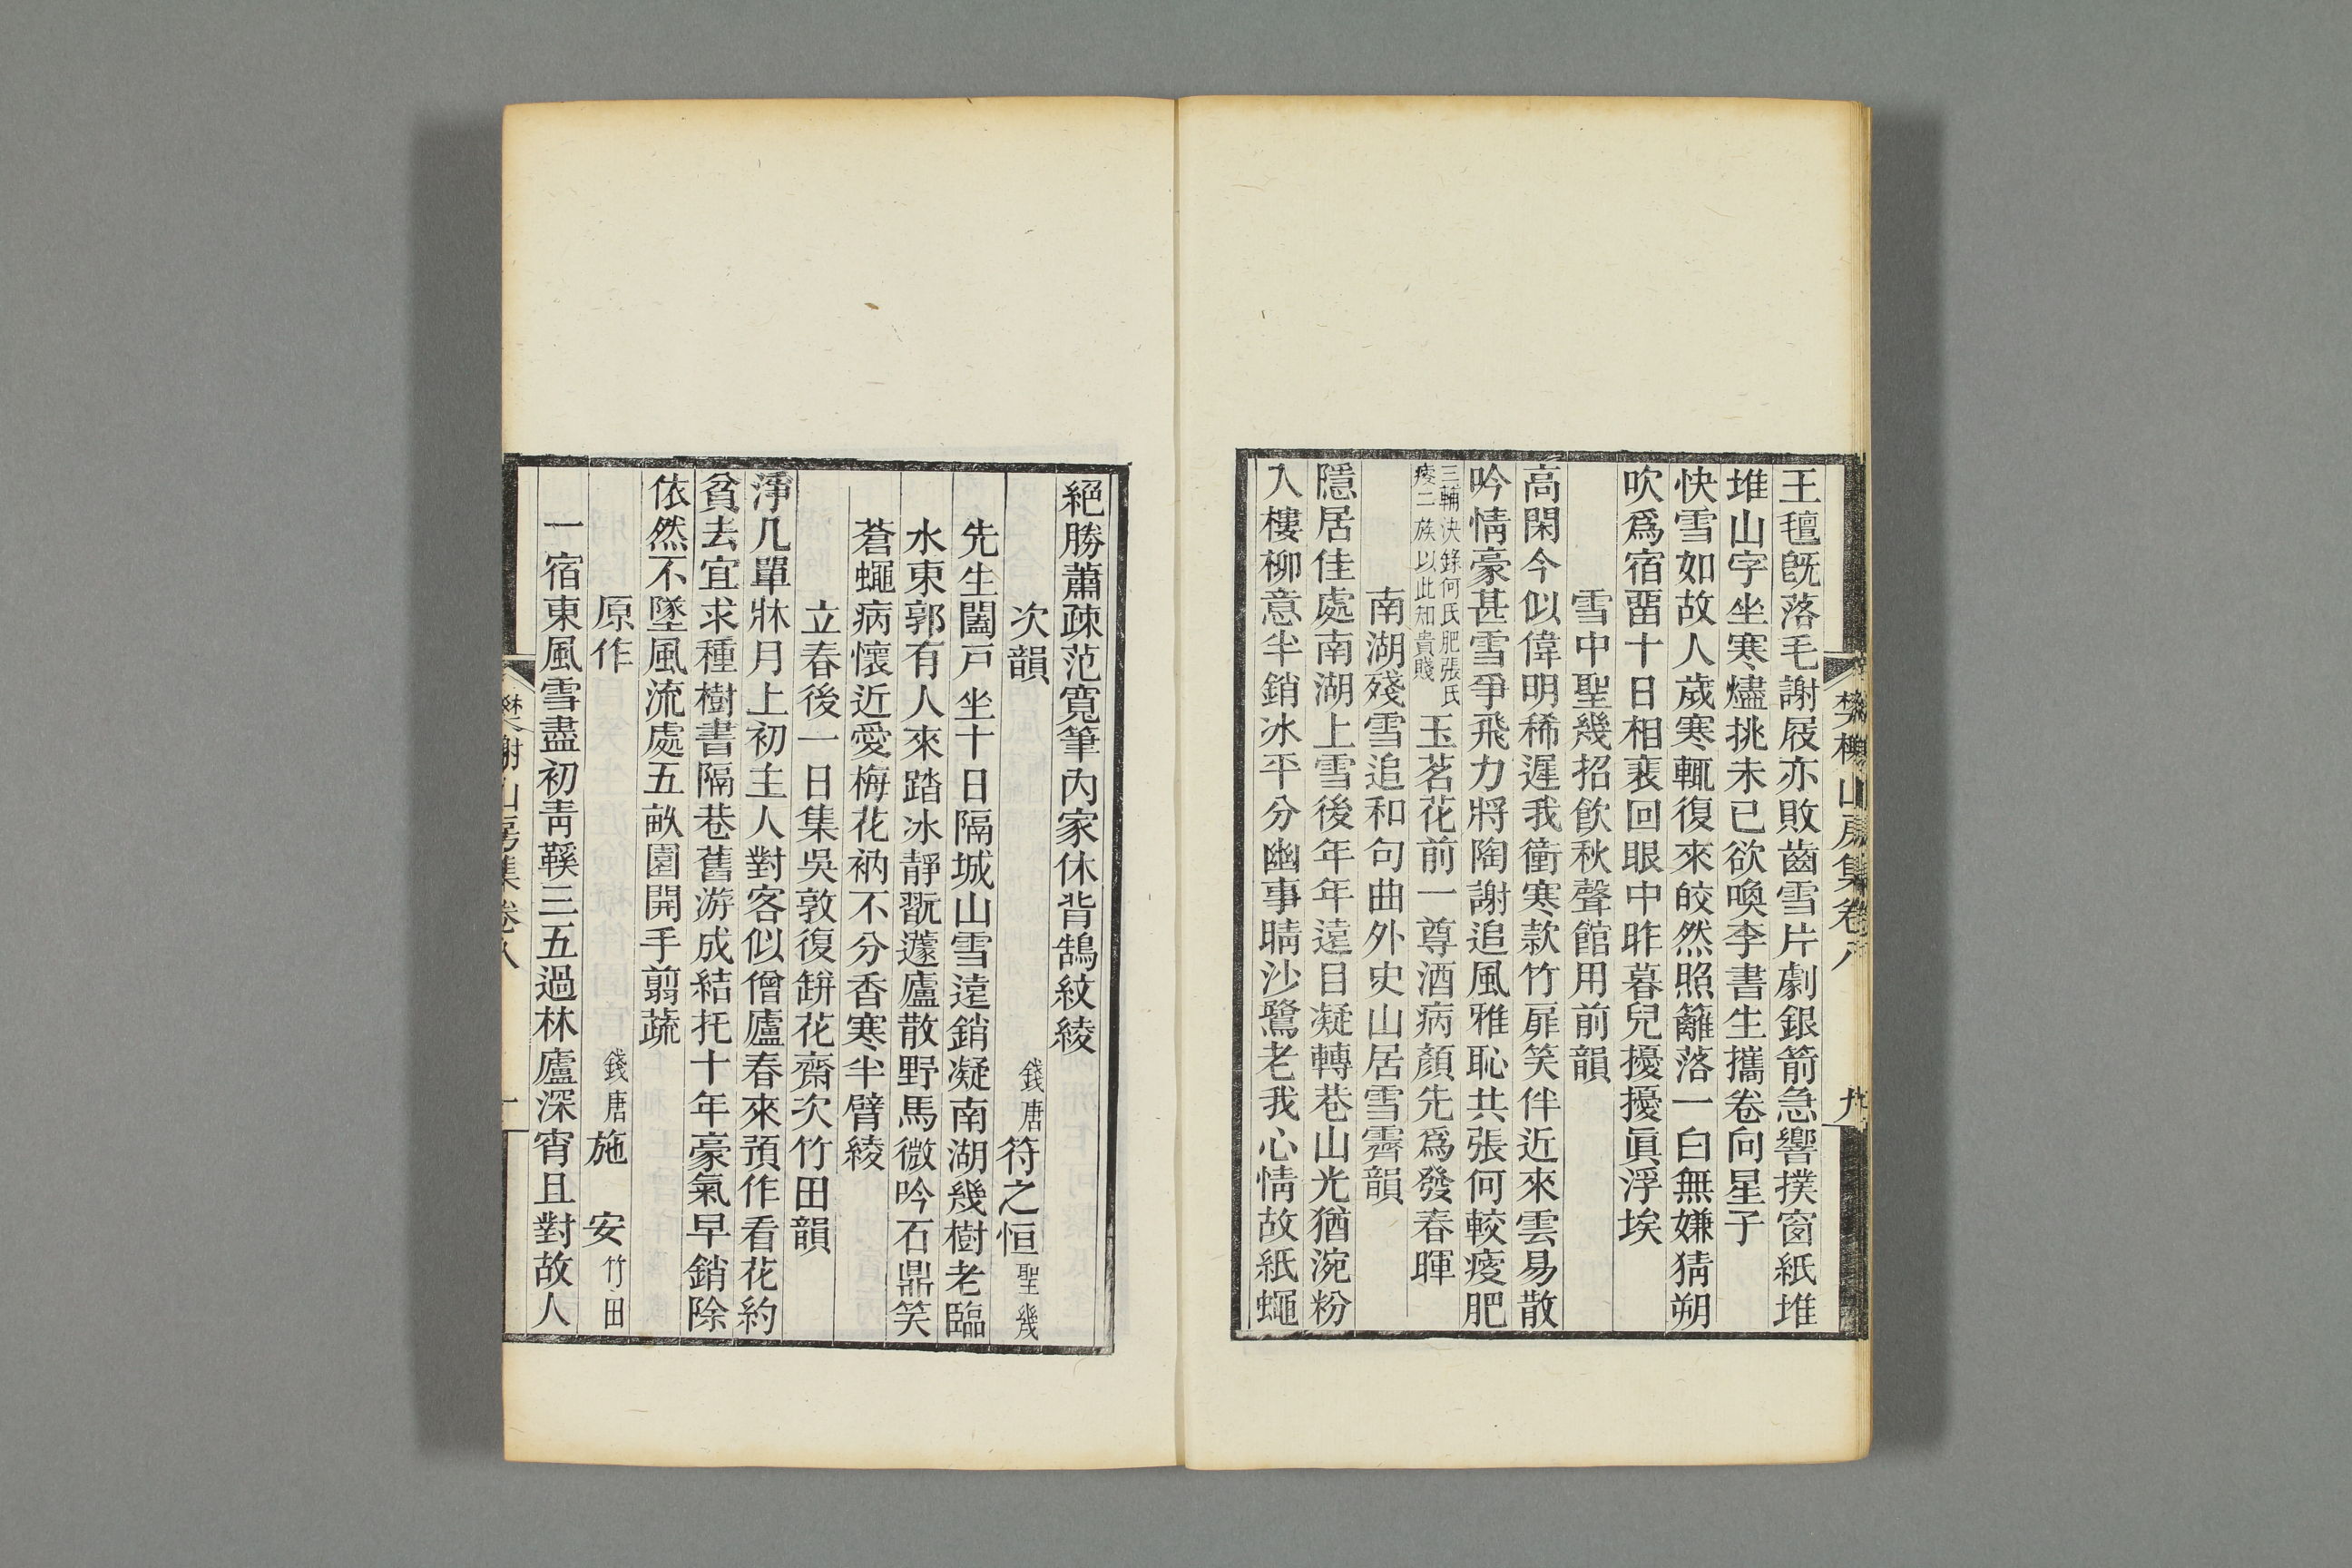 樊榭山房集卷八
九
王氊旣落毛謝屐亦敗齒雪片劇銀箭急響撲窗紙堆
堆山字坐寒燼挑未已欲喚李書生攜卷向星子
快雪如故人歲寒輒復來皎然照籬落一白無嫌猜朔
吹爲宿畱十日相裵回眼中昨暮兒擾擾眞浮埃
雪中聖幾招飲秋聲館用前韻
高閑今似偉明稀遲我衝寒款竹扉笑伴近來雲易散
吟情豪甚雪爭飛力將陶謝追風雅恥共張何較㾪肥
三輔決錄何氏肥張氏
㾪二族以此知貴賤
玉茗花前一尊酒病顏先爲發春暉
南湖殘雪追和句曲外史山居雪霽韻
隱居佳處南湖上雪後年年遠目凝轉巷山光猶涴粉
入樓柳意半銷冰平分幽事晴沙鷺老我心情故紙蠅
絕勝蕭疎范寬筆內家休背鵠紋綾
次韻
錢唐符之恒聖幾
先生闔戸坐十日隔城山雪遠銷凝南湖幾樹老臨
水東郭有人來踏冰靜翫蘧廬散野馬微吟石鼎笑
蒼蠅病懷近愛梅花衲不分香寒半臂綾
立春後一日集吳敦復缾花齋次竹田韻
淨几單牀月上初主人對客似僧廬春來預作看花約
貧去宜求種樹書隔巷舊游成結托十年豪氣早銷除
依然不墜風流處五畝園開手翦蔬
原作
錢唐施 安竹田
一宿東風雪盡初靑鞵三五過林廬深宵且對故人
樊榭山房集卷八